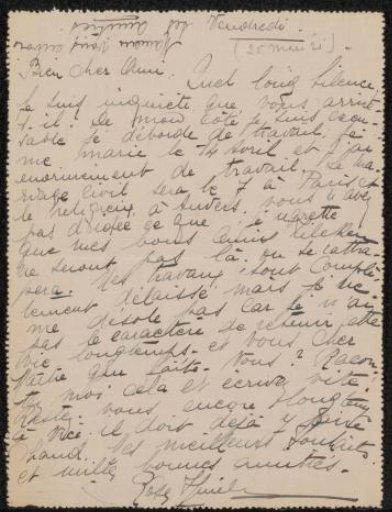 Vendredi.
(20 mai 21)
Bien cher Ami. Quel long silence,
je suis inquiète que vous arrive
t-il. De mon côté je suis
je déborde de travail, je
me marie le 14 avril et j'ai
enormement de travail. Le ma
riage civil sera le 7 à Paris et
le religieux à Anvers. vous
pas je regrette
que mes bons amis
ne seront pas là. on se rattra
pera. Mes travaux sont complè
tement délaissé mais je ne
me désole pas car je n'ai
pas le caractère de retenir cette
vie longtemps. et vous cher
Maître que faites-vous? Racon
tez moi cela et écrivez vite.
Restez vous encore longtemps
à il doit déjà y faire
chaud. Mes meilleurs souhaits
et mille bonnes amitiés.